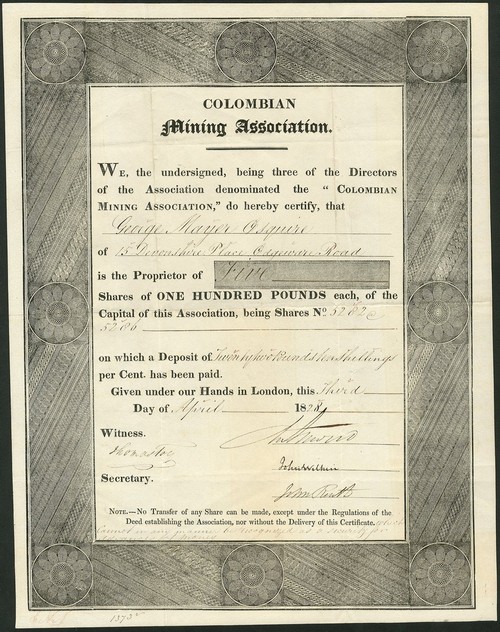 COLOMBIAN
Mining Association.
WE, the undersigned, being three of the Directors
of the Association denominated the " COLOMBIAN
MINING ASSOCIATION," do hereby certify, that
George Mayer Esquire
of 15 Devonshire Place Edgeware Road
is the Proprietor of Five
Shares of ONE HUNDRED POUNDS each, of the
Capital of this Association, being Shares No. 5282 @
5286
on which a Deposit of Twenty two Pounds ten shillings
per Cent. has been paid.
Given under our Hands in London, this Third
Day of April 1828
Witness.
John Wilkin
Secretary.
NOTE.—No Transfer of any Share can be made, except under the Regulations of the
Deed establishing the Association, nor without the Delivery of this Certificate. which
cannot in any manner be recognized as a security for